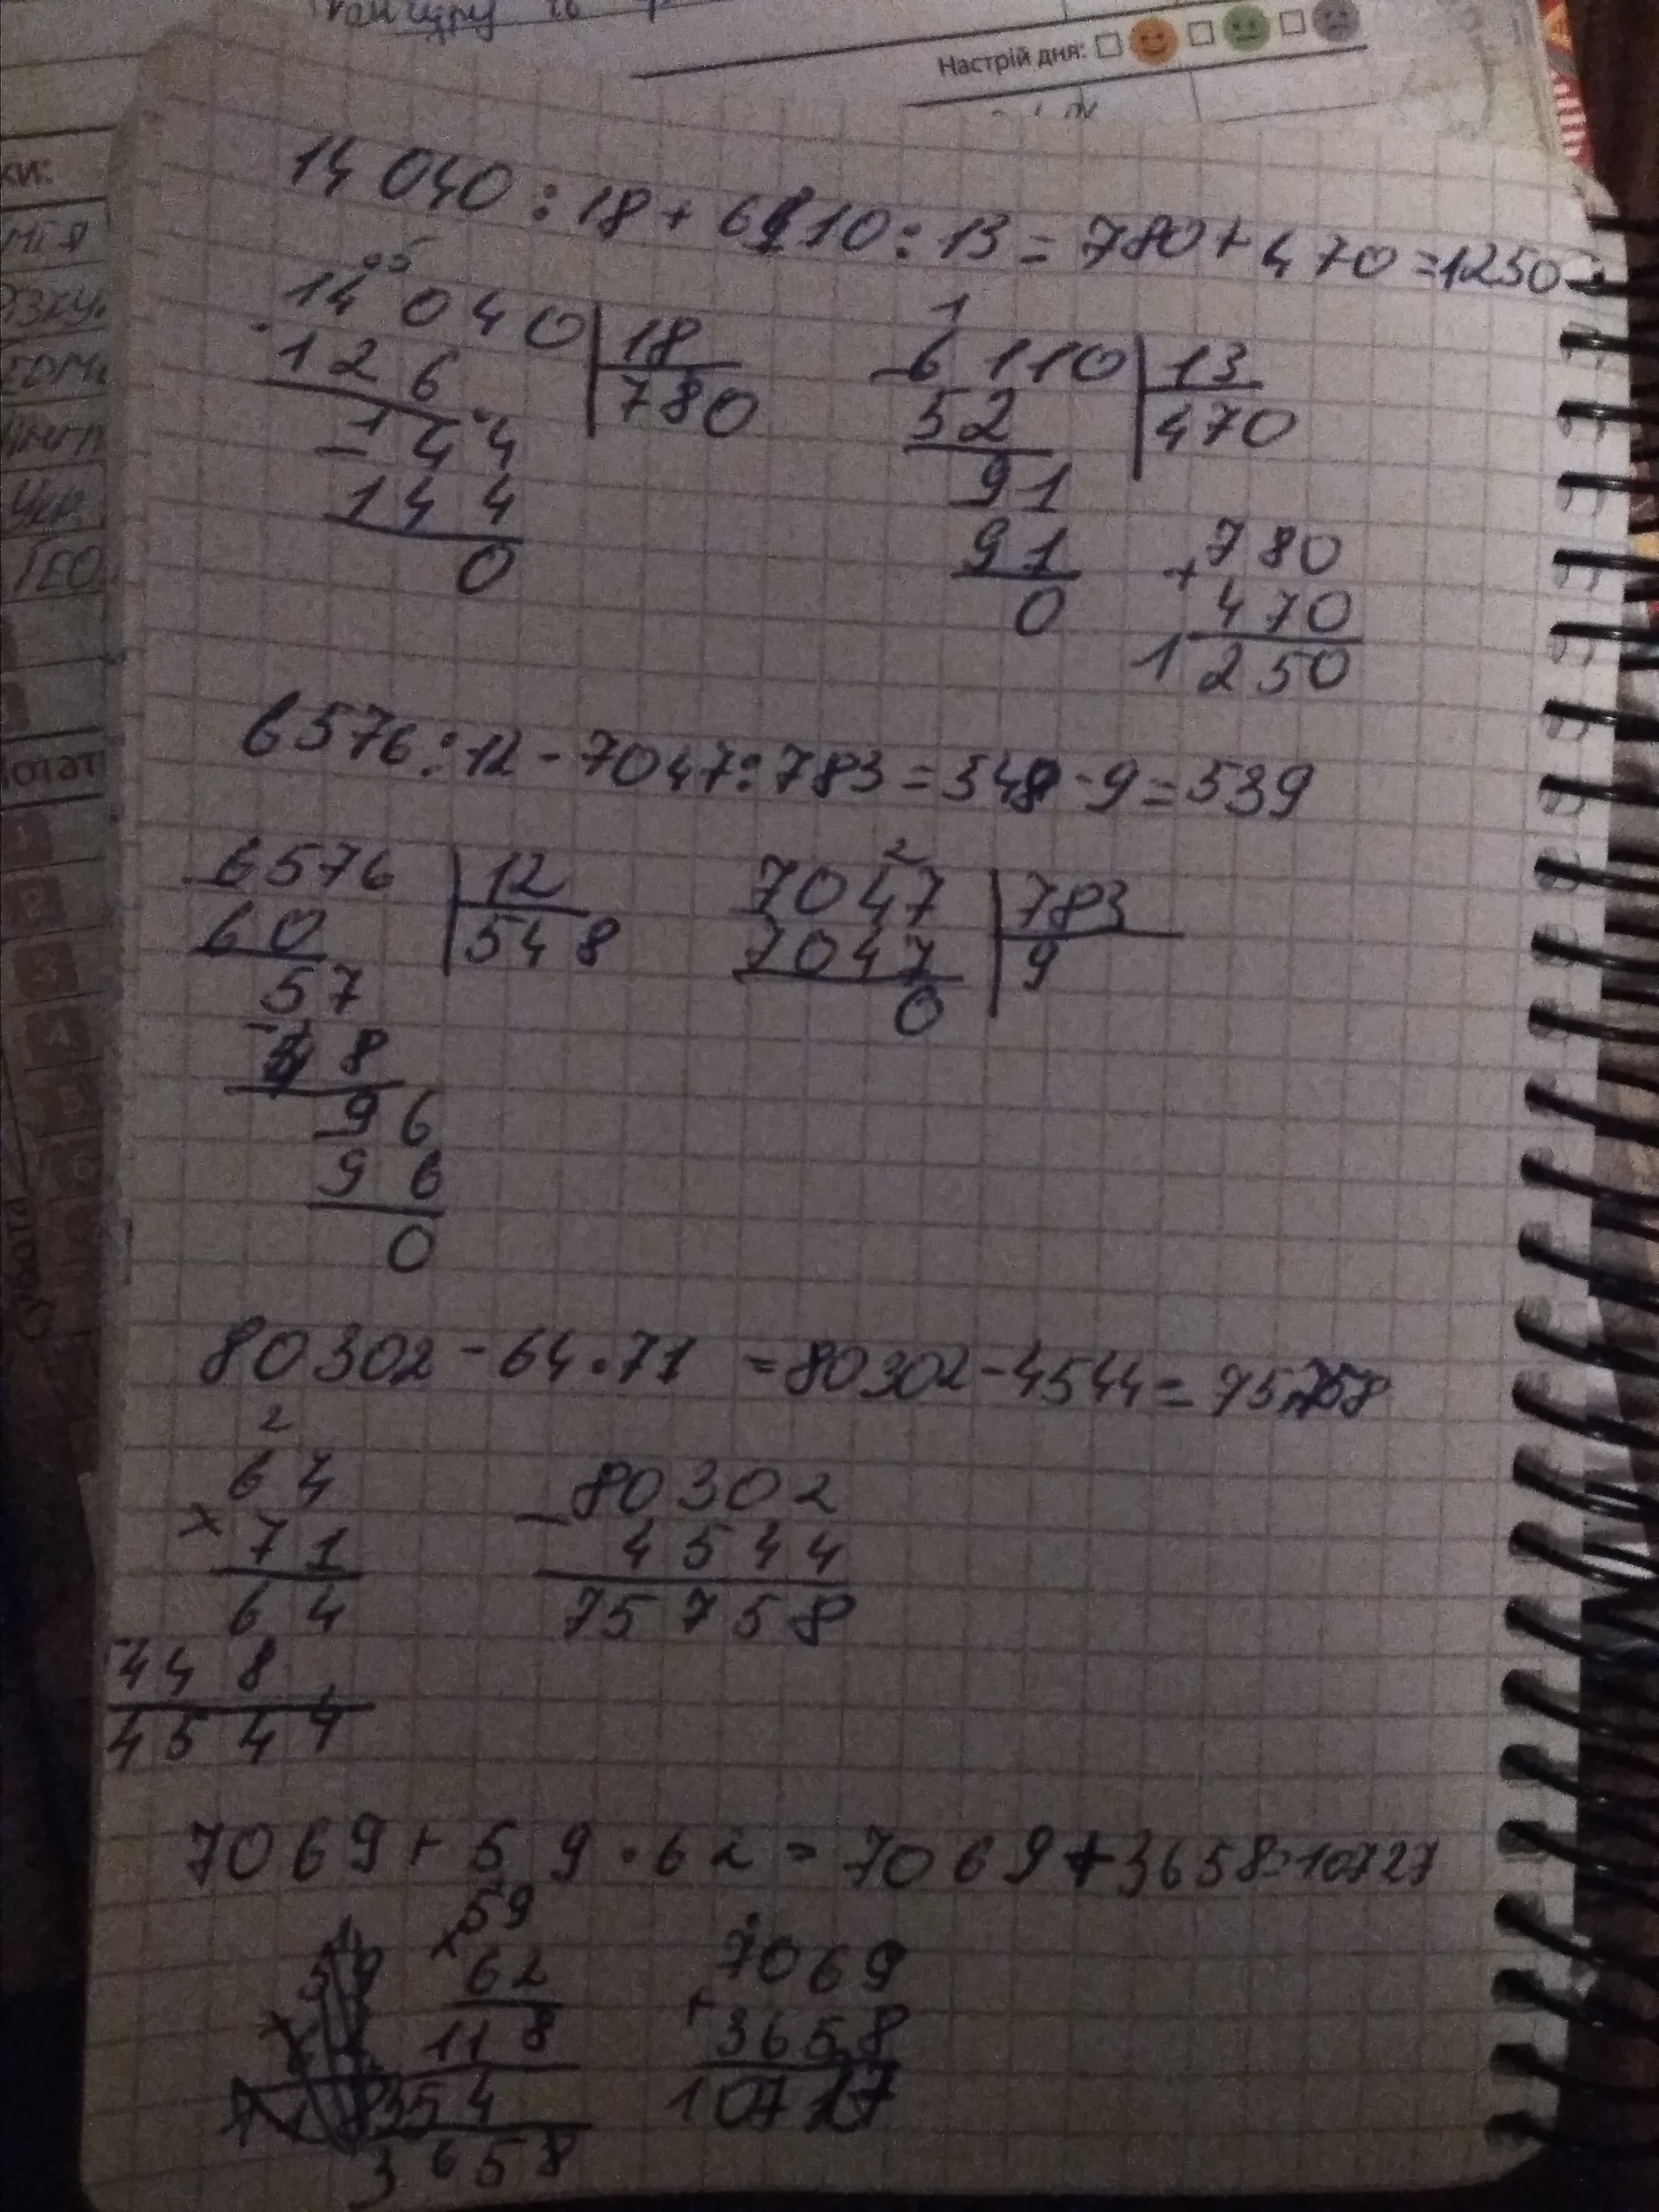 Настрій дня:
ки:
14 040 : 18 + 6110 : 13 = 780 + 470 = 1250
14 040 | 18
126 | 780
144
144
0
1
6 110 | 13
52 | 470
91
91
0
780
+
470
1 250
6576 : 12 - 7047 : 783 = 548 - 9 = 539
6576 | 12
60 | 548
57
48
96
96
0
2
7047 | 783
7047 | 9
0
80302 - 64 · 71 = 80302 - 4544 = 75758
2
64
× 71
64
448
4544
- 80302
4544
75758
7069 + 59 · 62 = 7069 + 3658 = 10727
59
×
62
118
354
3658
7069
+
3658
10727